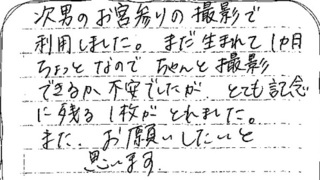 次男のお宮参りの撮影で
利用しました。まだ生まれて1カ月
ちょっとなのでちゃんと撮影
できるか不安でしたが、とても記念
に残る1枚がとれました。
また、お願いしたいと
思います